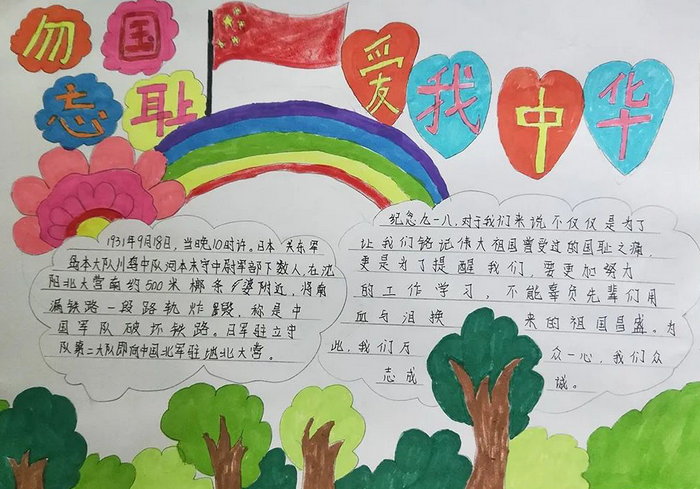 勿
国
忘
耻
爱
我
中
华
1931年9月18日,当晚10时许。日本关东军
岛本大队川岛中队河本末守中尉率部下数人,在沈
阳北大营南约500米柳条婆附近,将南
满铁路一段路轨炸毁,称是中
国军队破坏铁路。日军驻立守
队第二大队即向中国北军驻地北大营。
纪念九一八,对于我们来说不仅仅是为了
让我们铭记伟大祖国曾受过的国耻之痛,
更是为了提醒我们,要更加努力
的工作学习,不能辜负先辈们用
血与泪换 来的祖国昌盛。为
此,我们万 众一心,我们众
志成 诚。